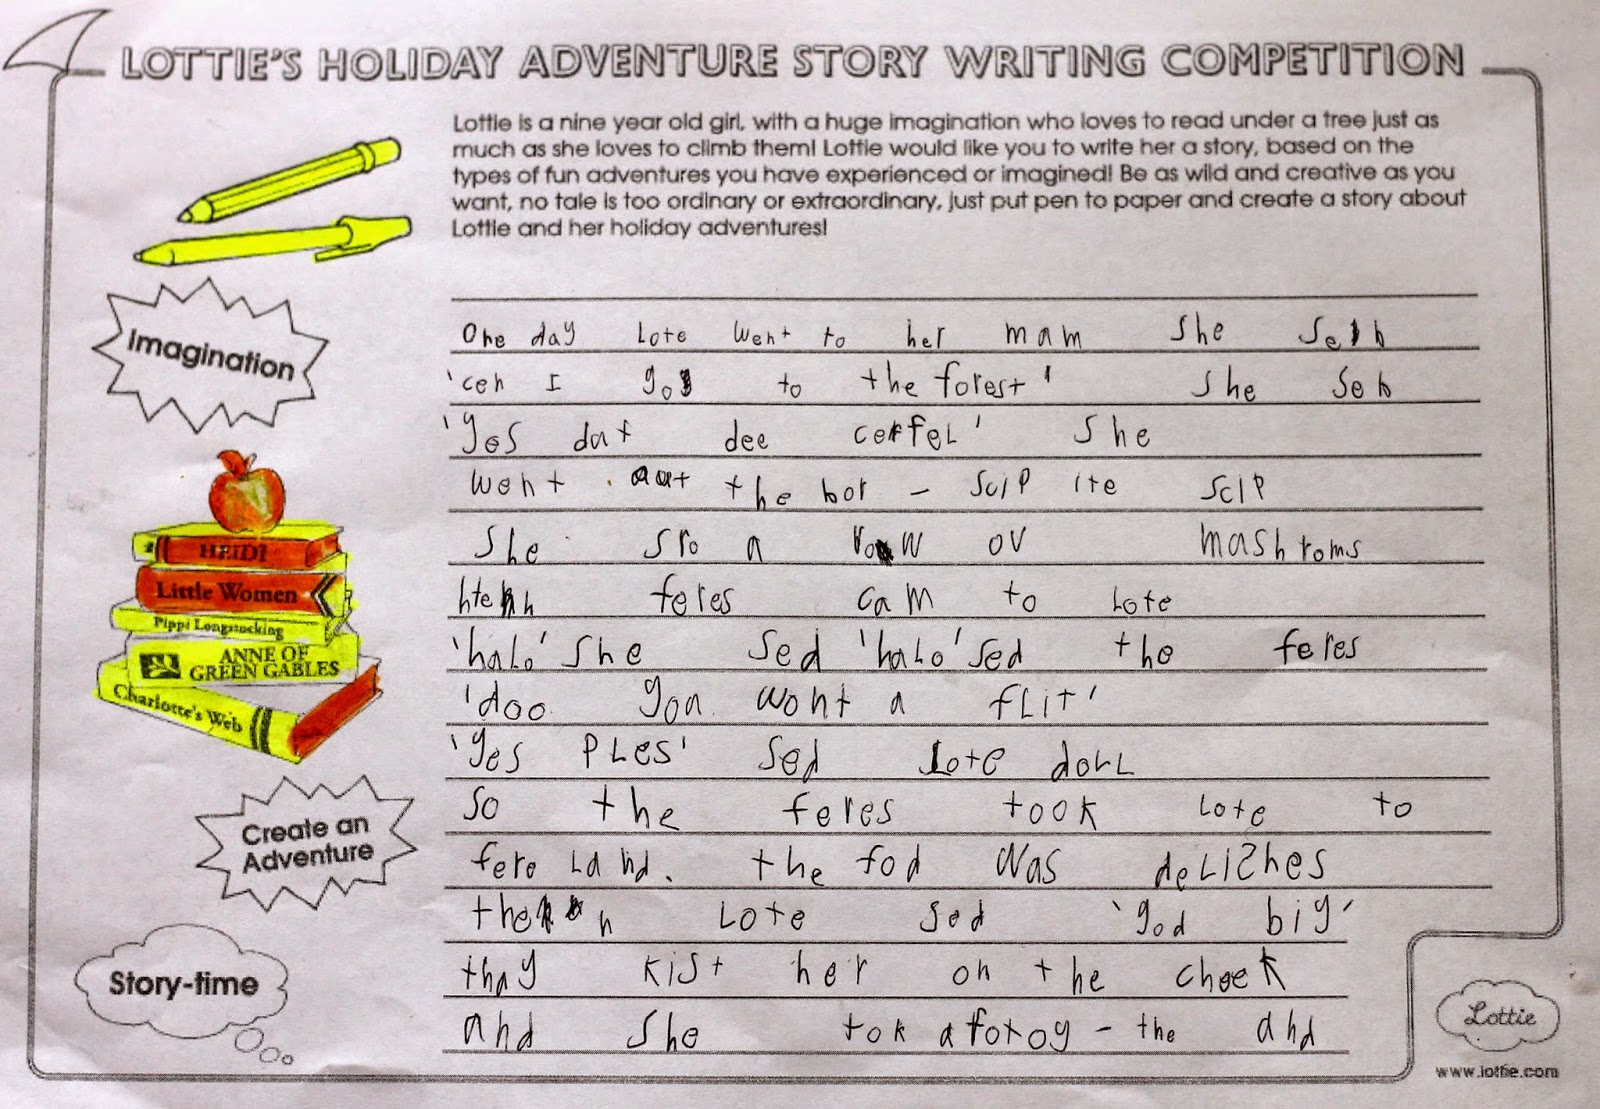 LOTTIE'S HOLIDAY ADVENTURE STORY WRITING COMPETITION
Lottie is a nine year old girl, with a huge imagination who loves to read under a tree just as
much as she loves to climb them! Lottie would like you to write her a story, based on the
types of fun adventures you have experienced or imagined! Be as wild and creative as you
want, no tale is too ordinary or extraordinary, just put pen to paper and create a story about
Lottie and her holiday adventures!
Imagination
HEIDI
Little Women
Pippi Longstocking
ANNE OF
GREEN GABLES
Charlotte's Web
Create an
Adventure
Story-time
One day Lote went to her mam she
'cen I go to the forest' she seb
'yes dat dee cerfel' she
went aut the bor - scip ite scip
she sro a row ov mashroms
feres cam to Lote
'halo' she sed 'halo' sed the feres
'doo you wont a flit'
'yes ples' sed Lote doll
so the feres took Lote to
fere Land. the fod was delishes
Lote sed 'god biy'
thay kist her on the cheek
and she tok a fotoy - the and
Lottie
www.lottie.com